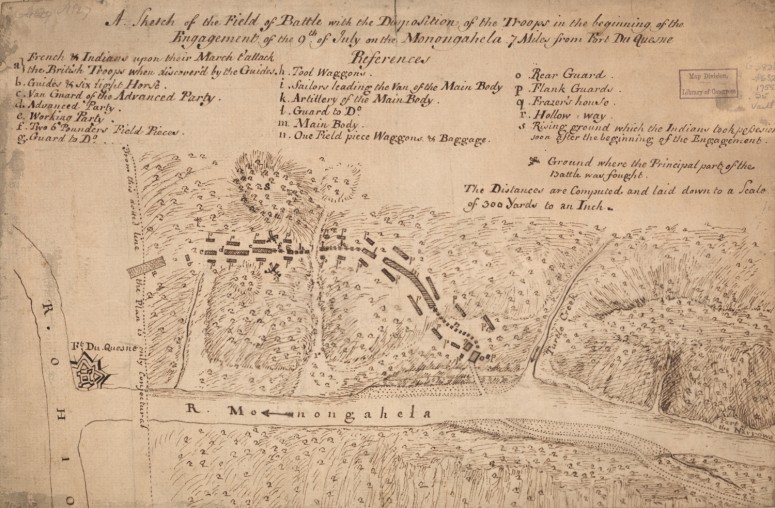 A Sketch of the Field of Battle with the Disposition of the Troops in the beginning of the
Engagement of the 9th of July on the Monongahela 7 Miles from Fort Du Quesne
References
a French & Indians upon their March t'attack
the British Troops when discover'd by the Guides.
b. Guides & six light Horse.
c. Van Guard of the Advanced Party.
d. Advanced Party.
e. Working Party.
f. Two 6 Pounders Field Pieces
g. Guard to Do.
h. Tool Waggons.
i. Sailors leading the Van of the Main Body
k. Artillery of the Main Body.
l. Guard to Do
m. Main Body.
n. One Field piece Waggons & Baggage.
o Rear Guard.
p Flank Guards.
q Frazer's house.
r. Hollow way.
s Rising ground which the Indians took possession
soon after the beginning of the Engagement.
Ground where the Principal part of the
Battle was fought.
The Distances are Computed and laid down to a Scale
of 300 Yards to an Inch.
Map Division,
Library of Congress
From this dotted line the Plan is only Conjectured
Ft. Du Quesne
R. OHIO
R. Monongahela
Turtle Creek